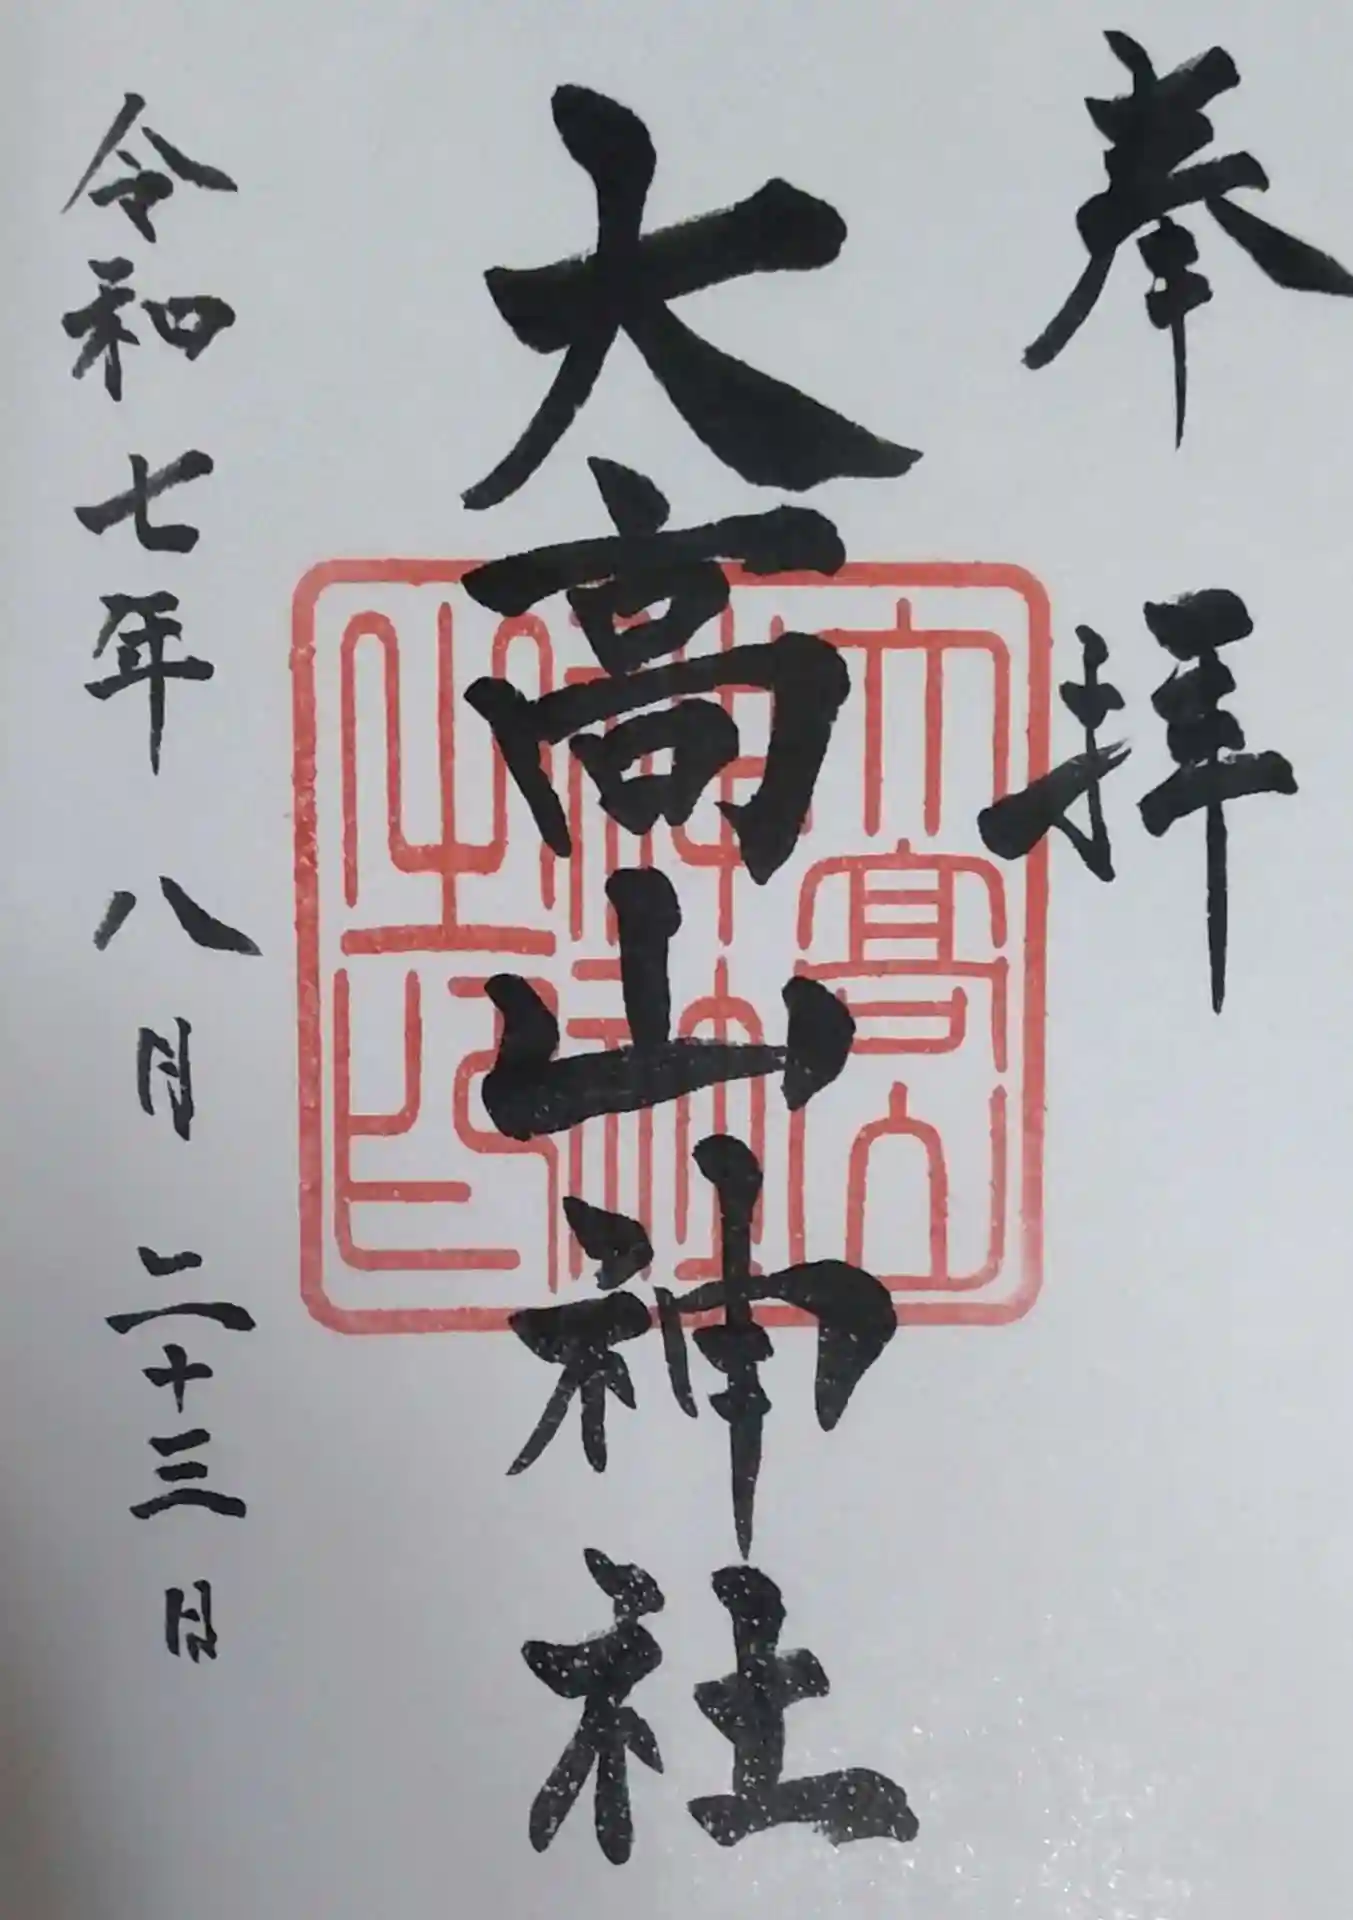 奉拝
大高山神社
大高山神社之印
令和七年八月二十三日